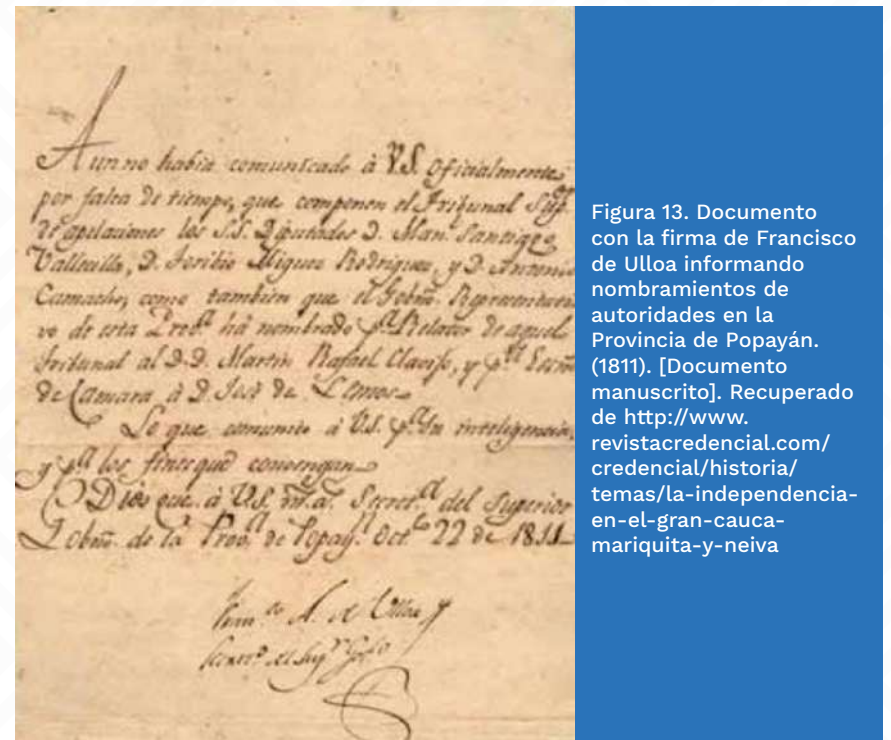 Aun no habia comunicado à V.S. Oficialmente
por falta de tiempo, que componen el Tribunal Sup.ᵒʳ
de apelaciones los S.S. Diputados D. Man. Santiago
Vallecilla, D. Toribio Miguez Rodriguez, y D. Antonio
Camacho, como tambien que el Gobno. Representati
vo de esta Prov.ᵃ há nombrado p.ᵃ Relator de aquel
Tribunal al D.D. Martin Rafael Clavijo, y p.ᵃ Secreº
de Camara à D. José de Lemos.
Lo que comunico à V.S. p.ᵃ su inteligencia,
y p.ᵃ los fines que convengan
Dios gue. à V.S. m.a. Secret.ᵃ del Superior
Gobno. de la Prov.ᵃ de Popay.ⁿ Oct.ᵉ 22 de 1811
Fran.ᶜᵒ A. de Ulloa
Secret.º del Sup.ʳ Gob.ᵒ
Figura 13. Documento
con la firma de Francisco
de Ulloa informando
nombramientos de
autoridades en la
Provincia de Popayán.
(1811). [Documento
manuscrito]. Recuperado
de http://www.
revistacredencial.com/
credencial/historia/
temas/la-independencia-
en-el-gran-cauca-
mariquita-y-neiva